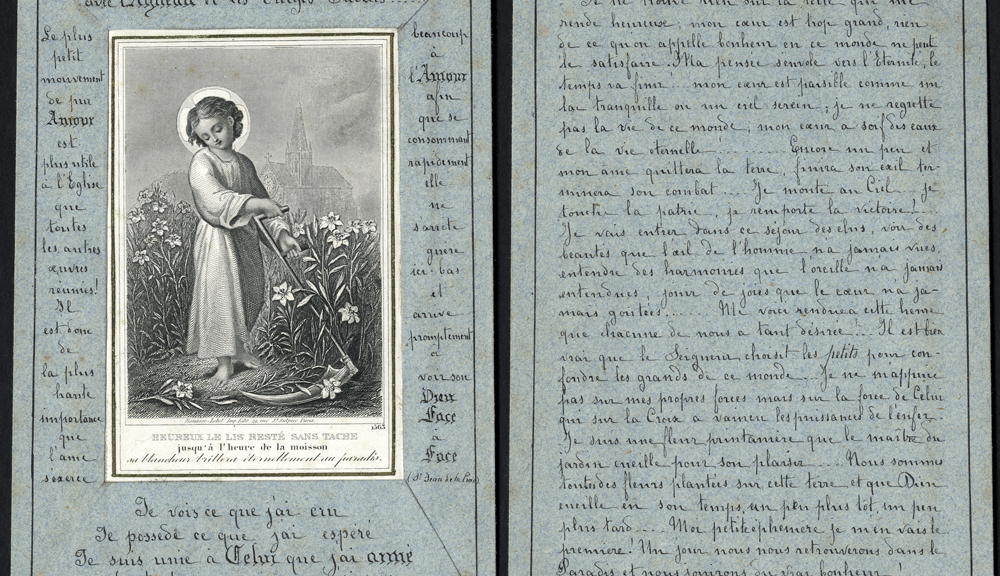 avec l'Agneau et les Vierges
Le plus
petit
mouvement
de pur
Amour
est
plus utile
à l'Eglise
que
toutes
les autres
œuvres
réunies!
Il
est donc
de
la plus
haute
importance
que
l'âme
s'exerce
beaucoup
à
l'Amour
afin
que se
consommant
rapidement
elle
ne
s'arrête
guère
ici-bas
et
arrive
promptement
à
voir son
Dieu
Face
à
Face
(St Jean de la Croix)
1563
HEUREUX LE LIS RESTÉ SANS TACHE
jusqu'à l'heure de la moisson
sa blancheur brillera éternellement au paradis.
Je vois ce que j'ai cru
Je possède ce que j'ai espéré
Je suis unie à Celui que j'ai aimé
Je ne trouve rien sur la terre qui me
rende heureuse; mon cœur est trop grand, rien
de ce qu'on appelle bonheur en ce monde ne peut
le satisfaire. Ma pensée s'envole vers l'Eternité, le
temps va finir!... mon cœur est paisible comme un
lac tranquille ou un ciel serein; je ne regrette
pas la vie de ce monde; mon cœur a soif des eaux
de la vie éternelle ......... Encore un peu et
mon âme quittera la terre, finira son exil ter-
minera son combat.... Je monte au Ciel... je
touche la patrie, je remporte la victoire!....
Je vais entrer dans ce séjour des élus, voir des
beautés que l'œil de l'homme n'a jamais vues,
entendre des harmonies que l'oreille n'a jamais
entendues, jouir de joies que le cœur n'a ja-
mais goûtées ....... Me voici rendue à cette heure
que chacune de nous a tant désirée!... Il est bien
vrai que le Seigneur choisit les petits pour con-
fondre les grands de ce monde... Je ne m'appuie
pas sur mes propres forces mais sur la force de Celui
qui sur la Croix a vaincu les puissances de l'enfer.
Je suis une fleur printanière que le maître du
jardin cueille pour son plaisir ..... Nous sommes
toutes des fleurs plantées sur cette terre et que Dieu
cueille en son temps, un peu plus tôt, un peu
plus tard.... Moi petite éphémère je m'en vais la
première! Un jour nous nous retrouverons dans le
Paradis et nous jouirons du vrai bonheur!